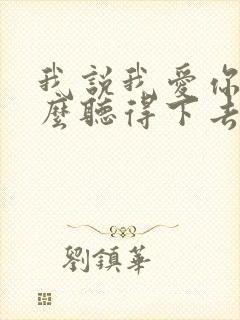 我說我愛你
麼聽得下去
劉鎮華